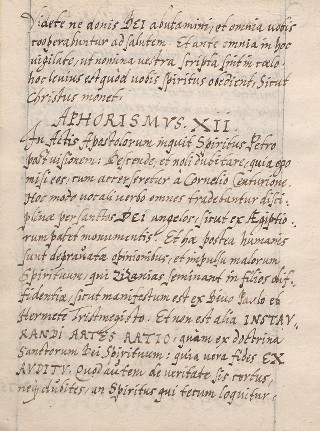 Videte ne donis DEI abutamini, et omnia vobis
cooperabuntur ad salutem. Et ante omnia in hoc
vigilate, ut nomina vestra scripta sint in cœlo
hoc levius est quod vobis spiritus obediat, sicut
Christus monet.
APHORISMVS. XII.
In Actis Apostolorum inquit Spiritus Petro
post visionem: Descende, et noli dubitare, quia ego
misi eos; cum accerseretur à Cornelio Centurione.
Hoc modo vocali verbo omnes tradebantur disci-
plinæ per sanctos DEI angelos, sicut ex Ægiptio-
rum patet monumentis. Et hæ postea humanis
sunt depravatæ opinionibus, et impulsu malorum
Spirituum, qui zizanias seminant in filios dif-
fidentiæ, sicut manifestum est ex Divo Paulo et
Hermete Trismegisto. Et non est alia INSTAV-
RANDI ARTES RATIO, quam ex doctrina
Sanctorum Dei Spirituum: quia vera fides EX
AVDITV. Quod autem de veritate sis certus,
neq; dubites, an Spiritus qui tecum loquitur,